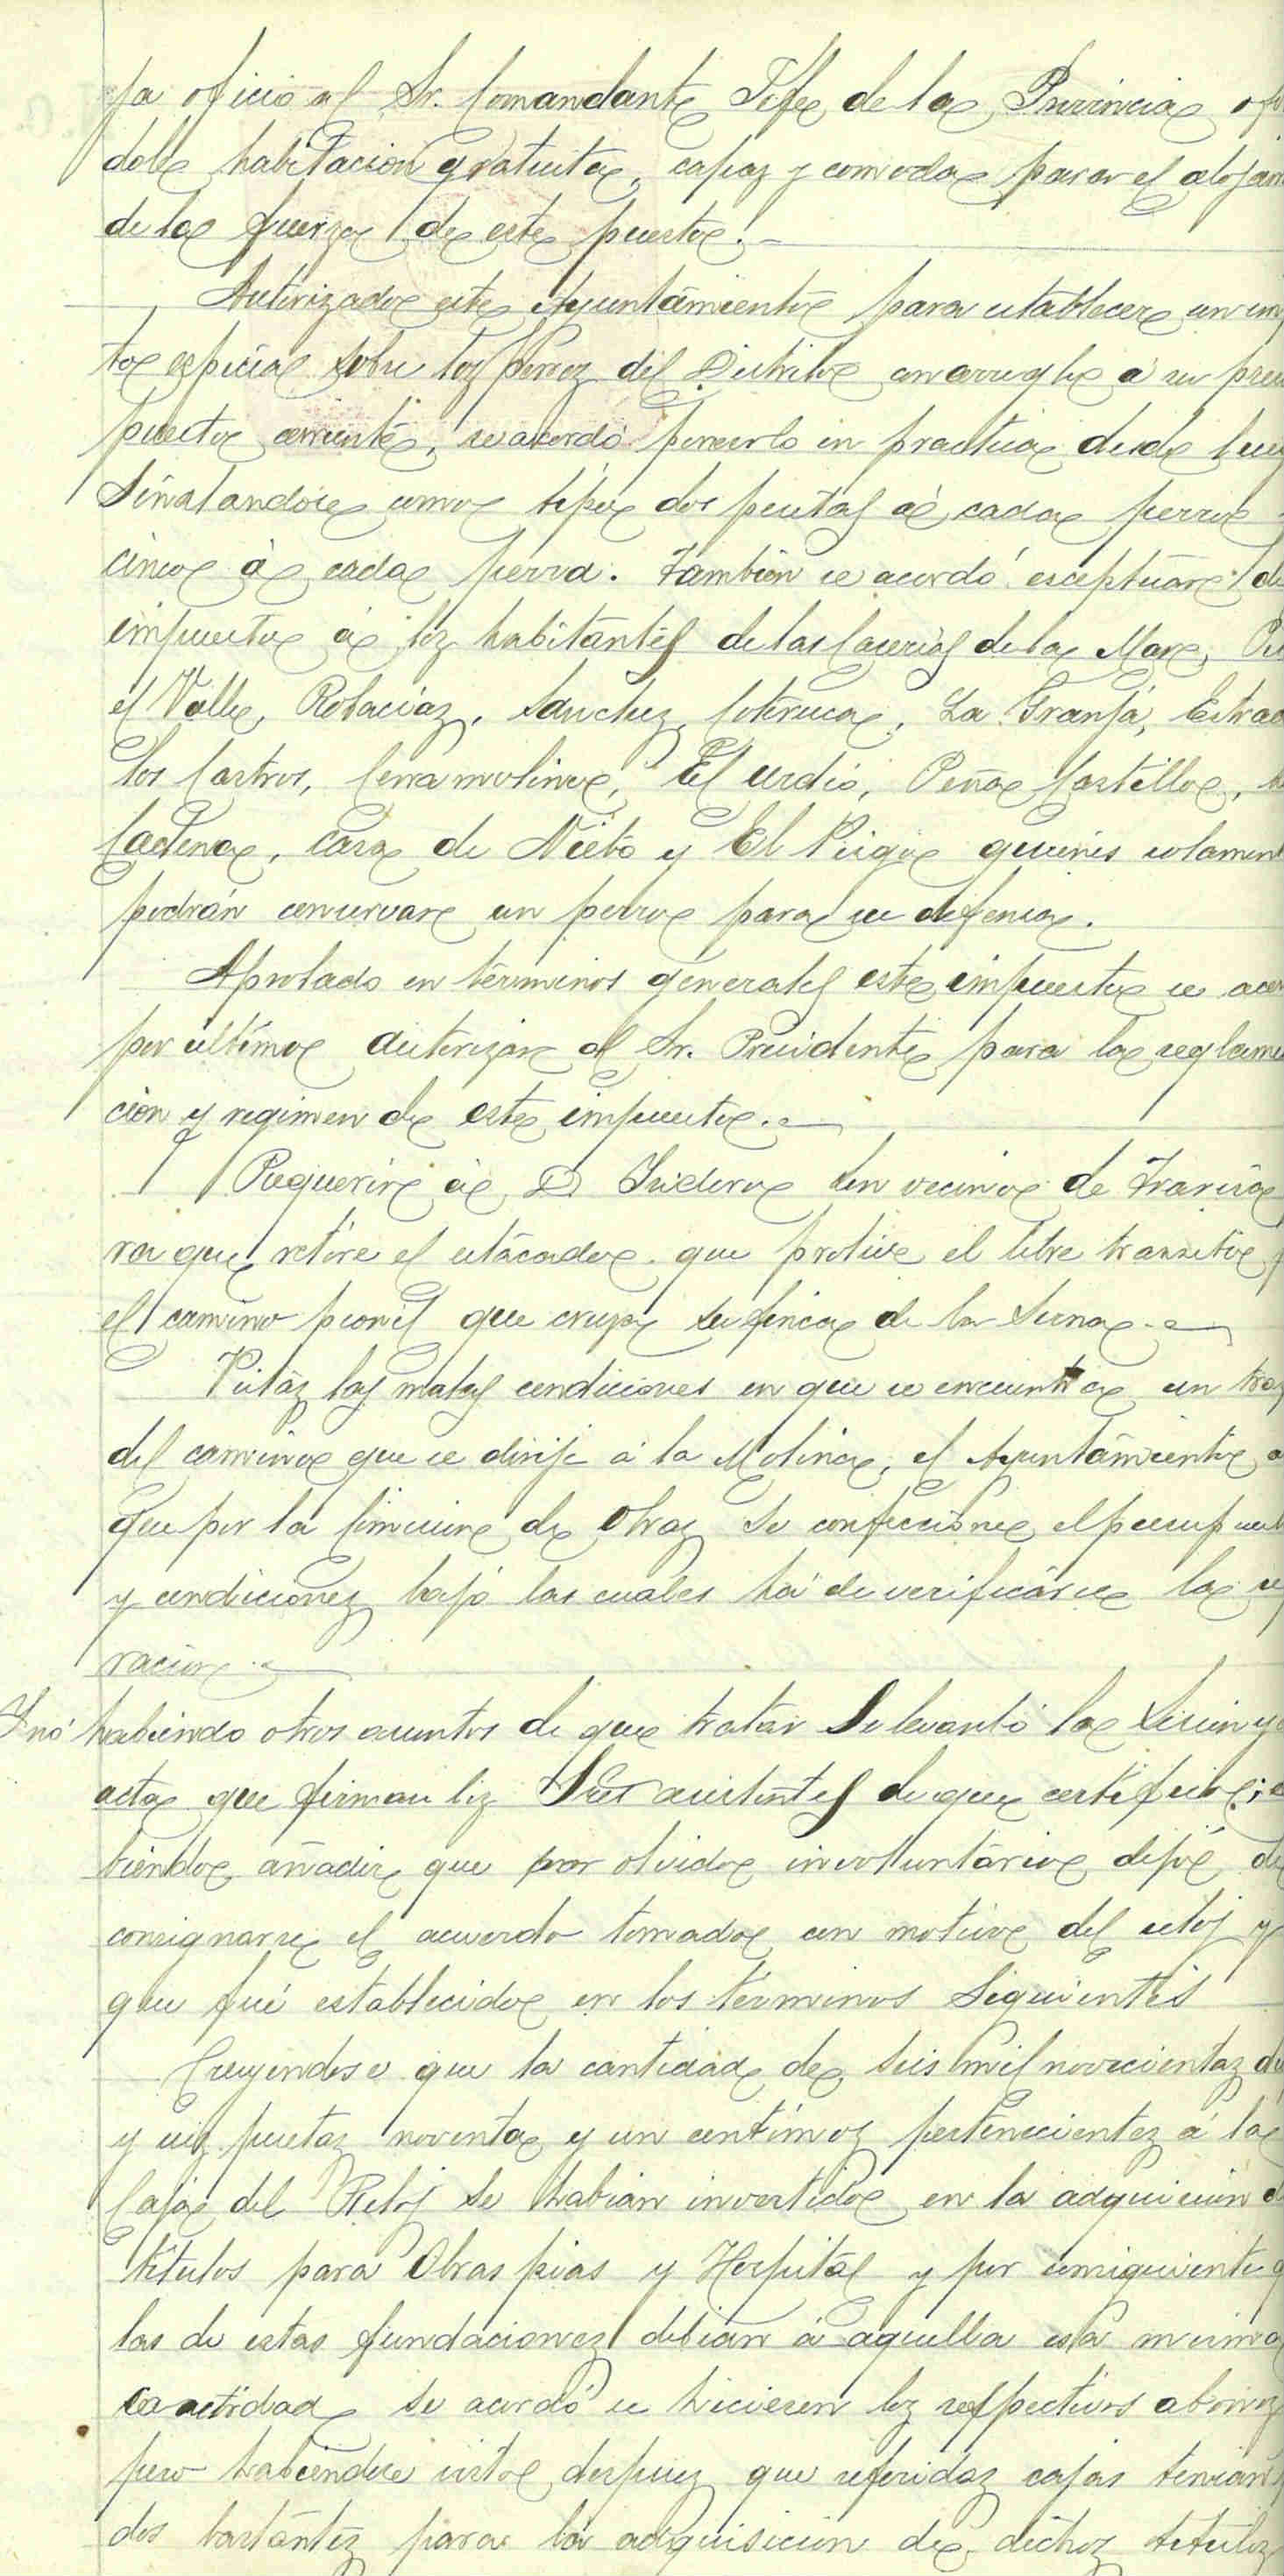 ja oficio al Sr. Comandante Jefe de la Provincia ofre
dole habitacion gratuita, capaz y comoda para el alojam
de la fuerza de este puesto.
Autorizado este Ayuntamiento para establecer un im
to especial sobre los perros del Distrito con arreglo á su presu
puesto corriente, se acordó ponerlo en practica desde lueg
Señalandose como tipo dos pesetas á cada perro
cinco á cada perra. Tambien se acordó esceptuar de
impuesto á los habitantes de las Caserias de la Mar,
el Valle, Robacias, Sanchez, Coteruca, La Granja, Estrad
los Castros, Cerramolino, El cerdio, Peña Castillo,
Cadena, Casa de Nieto y El Pirigo quienes solament
podrán conservar un perro para su defensa.
Aprobado en términos generales este impuesto se acor
por último autorizar al Sr. Presidente para la reglamen
ción y regimen de este impuesto.
Requerir á D Isidoro Sen vecino de Francia
ra que retire el estacado que prohive el libre transito p
el camino peonil que crupa su finca de la Serna.
Vistas las malas condiciones en que se encuentra un tro
del camino que se dirije á la Molina, el Ayuntamiento a
que por la Comision de Obras se confeccione el presupuest
y condiciones bajo las cuales há de verificarse la re
racion.
Y nó habiendo otros asuntos de que tratar Se levantó la Sesion y
acta que firman los Sres asistentes de que certifico;
biendo añadir que por olvido involuntario dejó de
consignarse el acuerdo tomado con motivo del reloj y
que fué establecido en los términos Siguientes
Creyendose que la cantidad de seis mil novecientas di
y seis pesetas noventa y un centimos pertenecientes á la
Caja del Reloj se habian invertido en la adquisicion d
titulos para Obras pias y Hospital y por consiguiente q
las de estas fundaciones debian á aquella esa misma
cantidad se acordó se hicieren los respectivos abonos
pero habiendose visto despues que referidas cajas tenian
dos bastantes para la adquisicion de dichos titulos